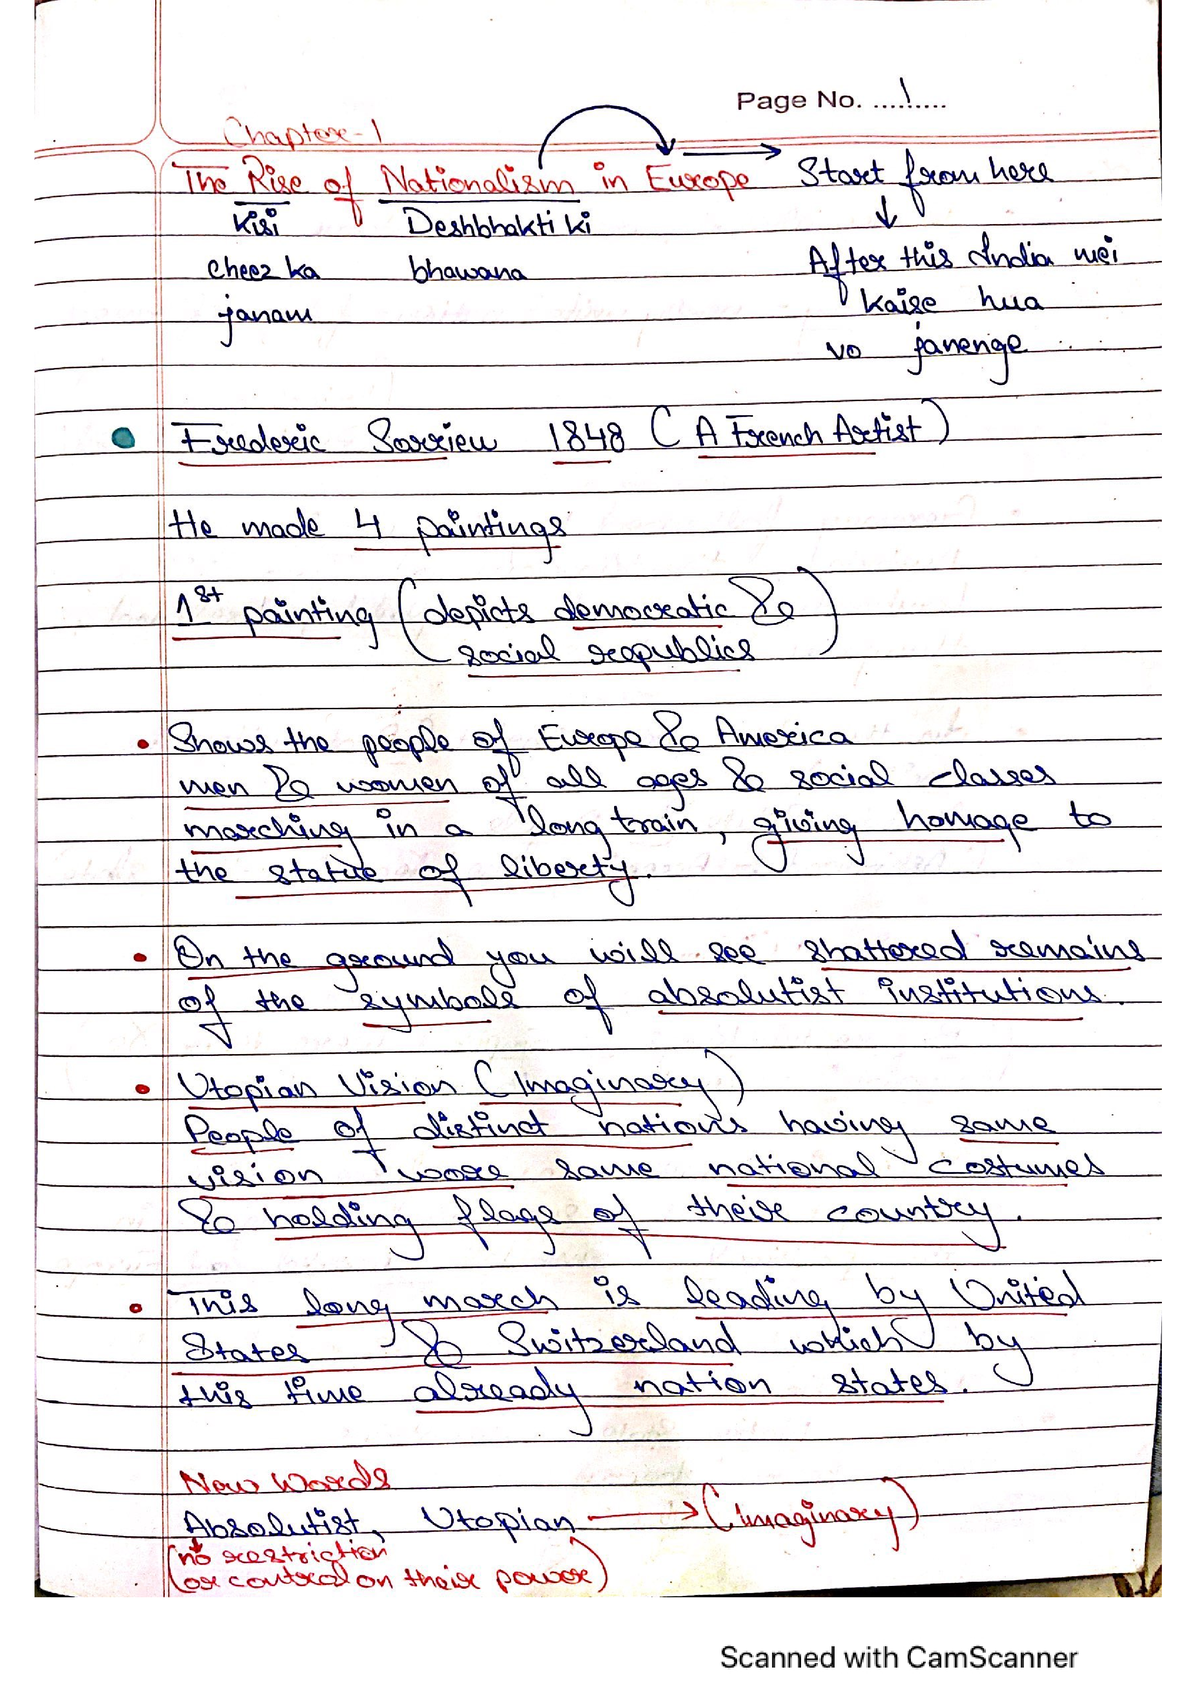 Page No. ....1....
Chapter-1
The Rise of Nationalism in Europe → Start from here
Kisi Deshbhakti ki
cheez ka bhawana
janam
↓
After this India mei
kaise hua
vo janenge
Frederic Sorrieu 1848 (A French Artist)
He made 4 paintings
1st painting (depicts democratic &
social republics)
• Shows the people of Europe & America
men & women of all ages & social classes
marching in a long train, giving homage to
the statue of liberty.
• On the ground you will see shattered remains
of the symbols of absolutist institutions.
• Utopian Vision (Imaginary)
People of distinct nations having same
vision wore same national costumes
& holding flags of their country.
• This long march is leading by United
States & Switzerland which by
this time already nation states.
New Words
Absolutist, Utopian → (imaginary)
(no restriction
or control on their power)
Scanned with CamScanner